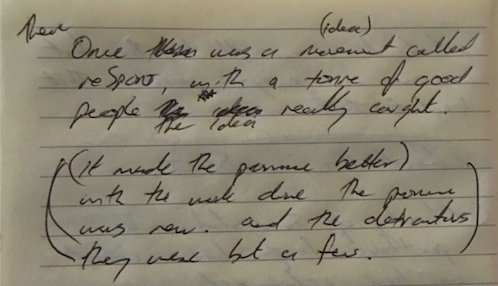 (idea)
Once was a movement called
reSpono, with a tonne of good
people the idea really caught.
(it made the pannue better)
with the work done the pannue
was new. and the detractors
they were but a few.